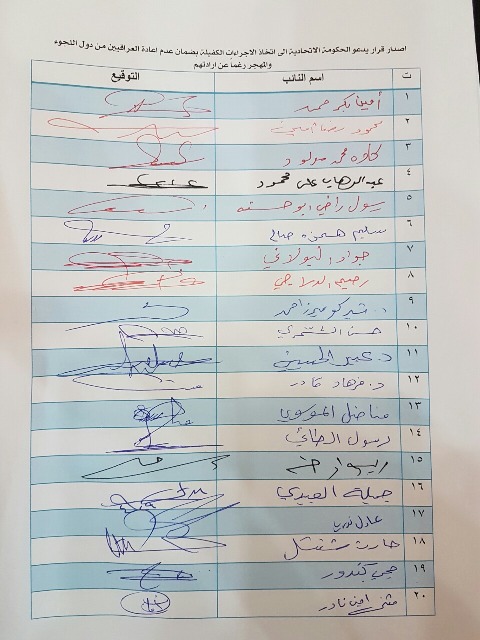 اصدار قرار يدعو الحكومة الاتحادية الى اتخاذ الاجراءات الكفيلة بضمان عدم اعادة العراقيين من دول اللجوء
والمهجر رغماً عن ارادتهم
ت اسم النائب التوقيع
١ أمين بكر محمد
٢ محمود رضا امين
٣ كاوه محمد مولود
٤ عبد الرهاب علي محمود
٥ رسول راضي ابو حسنه
٦ سليم همزه صالح
٧ جواد البولاني
٨ رحيم الدراجي
٩ د. شيركو ميرزا احمد
١٠ حسن الشمري
١١ د. عبير الحسيني
١٢ د. فرهاد قادر
١٣ مناضل الموسوي
١٤ رسول الطائي
١٥ ريبوار
١٦ جميلة العبيدي
١٧ عادل نوري
١٨ حارث شنشل
١٩ جي كندور
٢٠ مثنى امين نادر